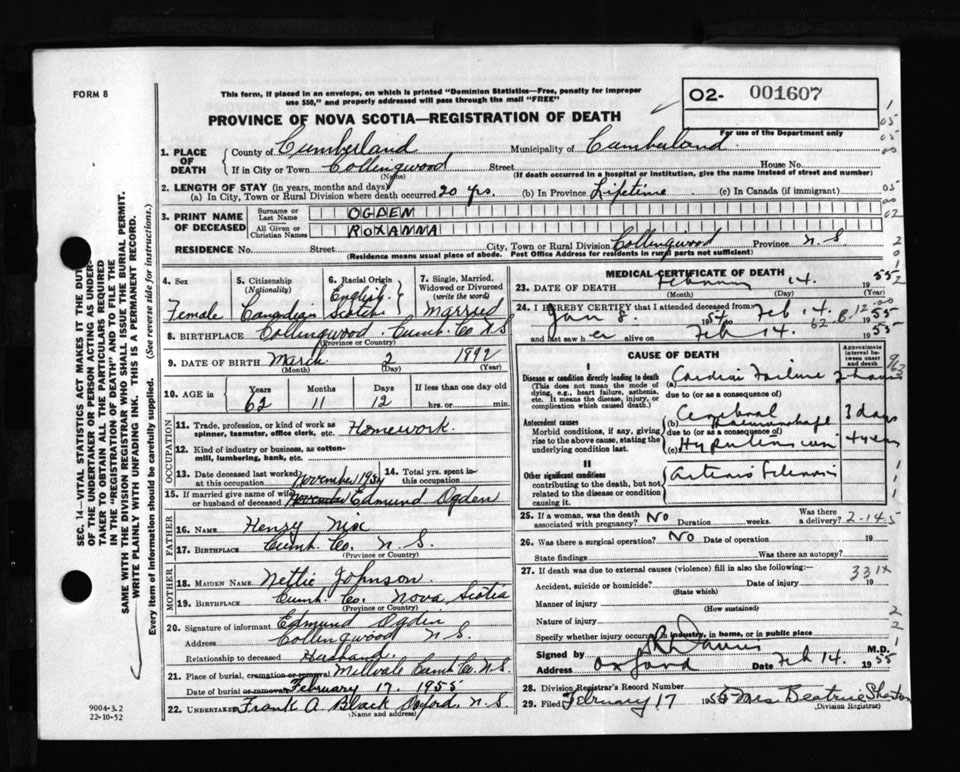 FORM 8
This form, if placed in an envelope, on which is printed "Dominion Statistics—Free, penalty for improper
use $50," and properly addressed will pass through the mail "FREE"
O2- 001607
For use of the Department only
PROVINCE OF NOVA SCOTIA—REGISTRATION OF DEATH
1. PLACE OF DEATH
County of Cumberland Municipality of Cumberland
If in City or Town Collingwood Street House No.
(Name) (If death occurred in a hospital or institution, give its name instead of street and number)
2. LENGTH OF STAY (in years, months and days)
(a) In City, Town or Rural Division where death occurred 20 yrs. (b) In Province Lifetime (c) In Canada (if immigrant)
3. PRINT NAME OF DECEASED
Surname or Last Name OGDEN
All Given or Christian Names ROXANNA
RESIDENCE No. Street City, Town or Rural Division Collingwood Province N.S
(Residence means usual place of abode. Post Office Address for residents in rural parts not sufficient)
4. Sex Female
5. Citizenship (Nationality) Canadian
6. Racial Origin English Scotch
7. Single, Married, Widowed or Divorced (write the word) Married
8. BIRTHPLACE Collingwood Cumb. Co N S
(Province or Country)
9. DATE OF BIRTH March 2 1892
(Month) (Day) (Year)
10. AGE in Years Months Days If less than one day old
62 11 12 hrs. or min.
OCCUPATION
11. Trade, profession, or kind of work as
spinner, teamster, office clerk, etc. Homework.
12. Kind of industry or business, as cotton-
mill, lumbering, bank, etc.
13. Date deceased last worked at this occupation November 1954
14. Total yrs. spent in this occupation
15. If married give name of wife or husband of deceased Edmund Ogden
FATHER
16. Name Henry Nix
17. Birthplace Cumb. Co. N. S.
(Province or Country)
MOTHER
18. Maiden Name Nettie Johnson
19. Birthplace Cumb. Co. Nova Scotia
(Province or Country)
20. Signature of informant Edmund Ogden
Address Collingwood N S.
Relationship to deceased Husband.
21. Place of burial, cremation or removal Millvale Cumb. Co. N. S.
Date of burial or removal February 17. 1955
22. Undertaker Frank A. Black Oxford, N. S.
(Name and address)
9004-3.2
22-10-52
MEDICAL CERTIFICATE OF DEATH
23. DATE OF DEATH February 14. 1955
(Month) (Day)
24. I HEREBY CERTIFY that I attended deceased from
Jan 8. 1954 to Feb 14. 1955
and last saw her alive on Feb 14. 1955
CAUSE OF DEATH
Approximate interval between onset and death
I
Disease or condition directly leading to death
(This does not mean the mode of dying, e.g., heart failure, asthenia, etc. It means the disease, injury, or complication which caused death.)
(a) Cardiac Failure 2 hours
due to (or as a consequence of)
Antecedent causes
Morbid conditions, if any, giving rise to the above cause, stating the underlying condition last.
(b) Cerebral Haemorrhage 3 days
due to (or as a consequence of)
(c) Hypertension 4 years
II
Other significant conditions
contributing to the death, but not related to the disease or condition causing it.
Arterio Sclerosis
25. If a woman, was the death associated with pregnancy? No Duration weeks. Was there a delivery?
2-14-5
26. Was there a surgical operation? No Date of operation 19
State findings Was there an autopsy?
27. If death was due to external causes (violence) fill in also the following:
331X
Accident, suicide or homicide? Date of injury 19
(State which)
Manner of injury
(How sustained)
Nature of injury
Specify whether injury occurred in industry, in home, or in public place
Signed by M.D.
Address Oxford Date Feb 14. 1955
28. Division Registrar's Record Number
29. Filed February 17 1955 Mrs. Beatrice
(Division Registrar)
SEC. 14—VITAL STATISTICS ACT MAKES IT THE DUTY
OF THE UNDERTAKER OR PERSON ACTING AS UNDER-
TAKER TO OBTAIN ALL THE PARTICULARS REQUIRED
IN THE "REGISTRATION OF DEATH" AND TO FILE THE
SAME WITH THE DIVISION REGISTRAR WHO SHALL ISSUE THE BURIAL PERMIT.
WRITE PLAINLY WITH UNFADING INK. THIS IS A PERMANENT RECORD.
Every item of information should be carefully supplied. (See reverse side for instructions.)